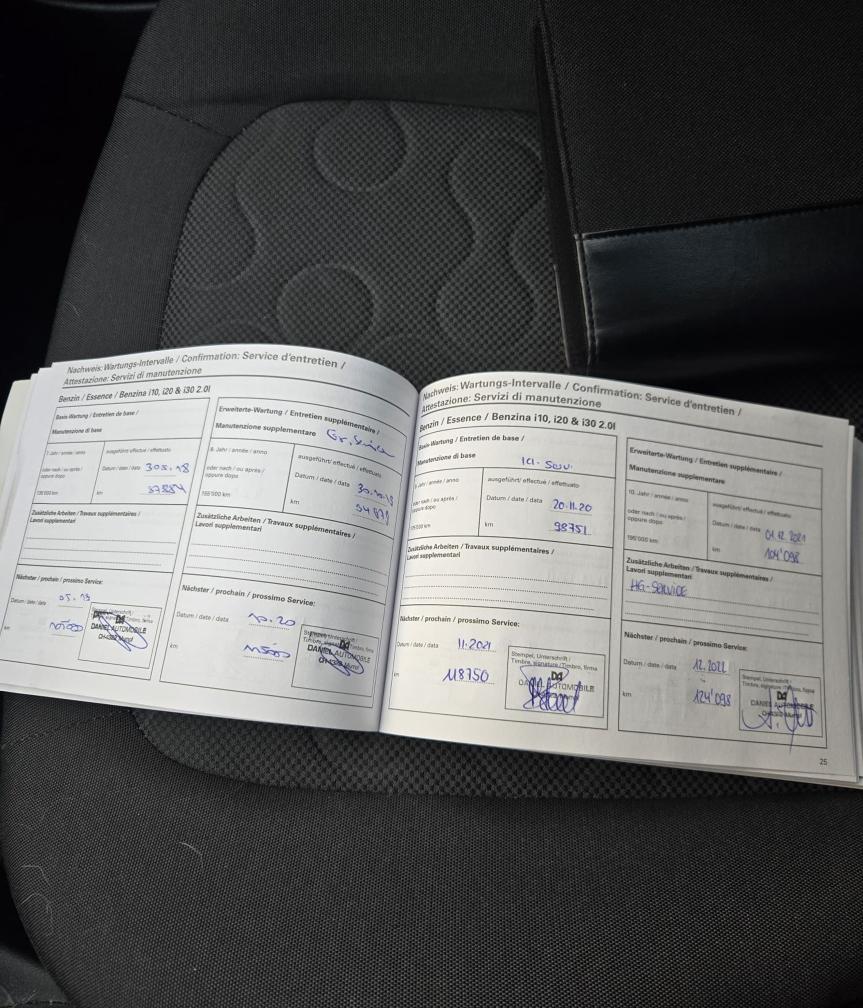 Nachweis: Wartungs-Intervalle / Confirmation: Service d'entretien /
Attestazione: Servizi di manutenzione
Benzin / Essence / Benzina i10, i20 & i30 2.0l
Basis-Wartung / Entretien de base /
Manutenzione di base
7. Jahr / année / anno
oder nach / ou après /
oppure dopo
km
ausgeführt / effectué / effettuato
Datum / date / data
km
Zusätzliche Arbeiten / Travaux supplémentaires /
Lavori supplementari
Nächster / prochain / prossimo Service:
Datum / date / data
km
DANIEL AUTOMOBILE
Erweiterte-Wartung / Entretien supplémentaire /
Manutenzione supplementare
8. Jahr / année / anno
oder nach / ou après /
oppure dopo
km
ausgeführt / effectué / effettuato
Datum / date / data
km
Zusätzliche Arbeiten / Travaux supplémentaires /
Lavori supplementari
Nächster / prochain / prossimo Service:
Datum / date / data
km
DANIEL AUTOMOBILE
Nachweis: Wartungs-Intervalle / Confirmation: Service d'entretien /
Attestazione: Servizi di manutenzione
Benzin / Essence / Benzina i10, i20 & i30 2.0l
Basis-Wartung / Entretien de base /
Manutenzione di base
Jahr / année / anno
oder nach / ou après /
oppure dopo
km
ausgeführt / effectué / effettuato
Datum / date / data 20.11.20
km 98751
Zusätzliche Arbeiten / Travaux supplémentaires /
Lavori supplementari
Nächster / prochain / prossimo Service:
Datum / date / data 11.2021
km 118750
Stempel, Unterschrift /
Timbre, signature / Timbro, firma
Erweiterte-Wartung / Entretien supplémentaire /
Manutenzione supplementare
10. Jahr / année / anno
oder nach / ou après /
oppure dopo
195'000 km
ausgeführt / effectué / effettuato
Datum / date / data 01.12.2021
km 104'098
Zusätzliche Arbeiten / Travaux supplémentaires /
Lavori supplementari
HG-SERVICE
Nächster / prochain / prossimo Service:
Datum / date / data 12.2022
km 124'098
Stempel, Unterschrift /
Timbre, signature / Timbro, firma
25